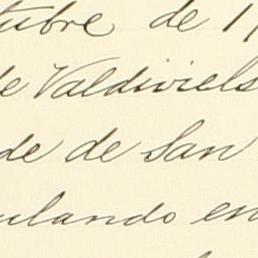 tubre de 1
de Valdiviels
de de San
ulando en